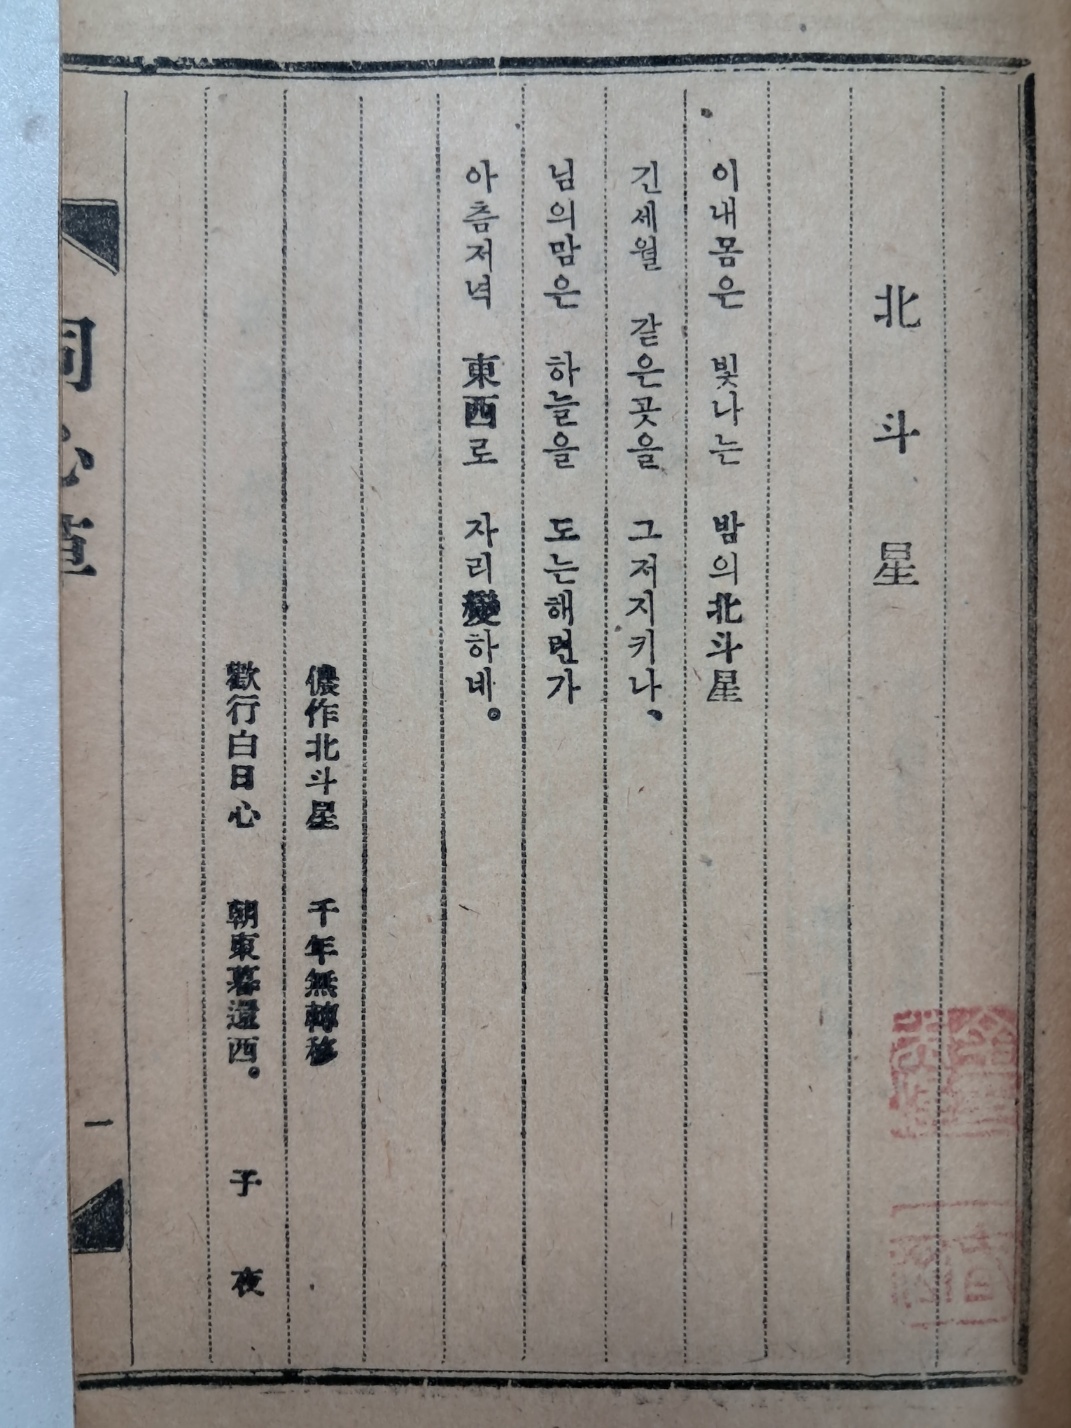 北斗星
이내몸은 빛나는 밤의北斗星
긴세월 같은곳을 그저지키나、
님의맘은 하늘을 도는해런가
아츰저녁 東西로 자리變하네。
儂作北斗星 千年無轉移
歡行白日心 朝東暮還西。 子夜
同心草
一